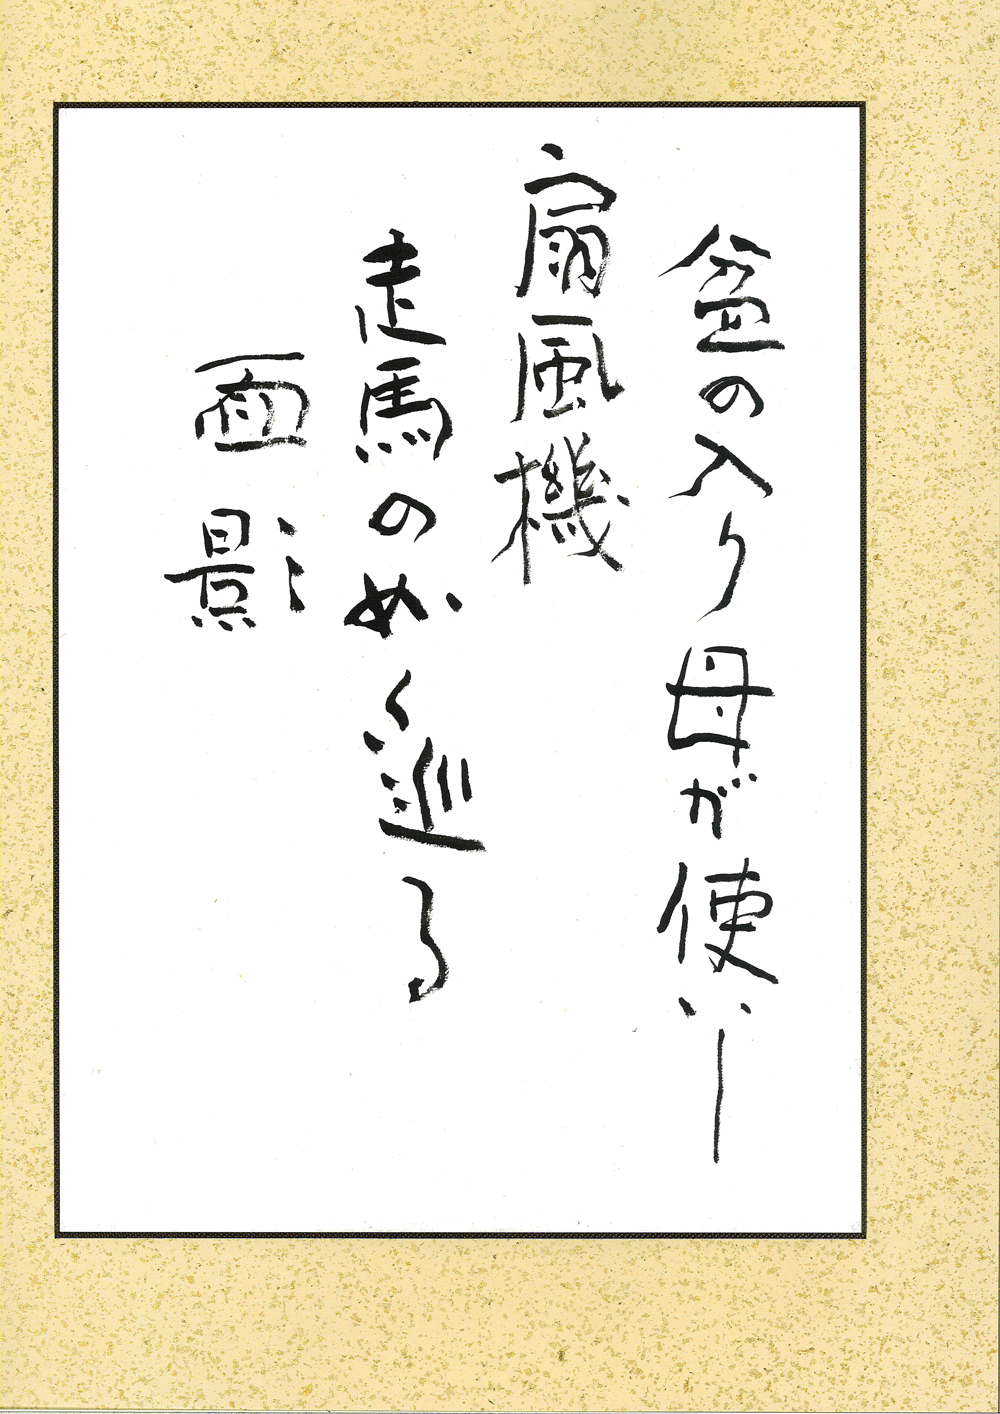 盆の入り母が使いし
扇風機
走馬のめく巡る
面影